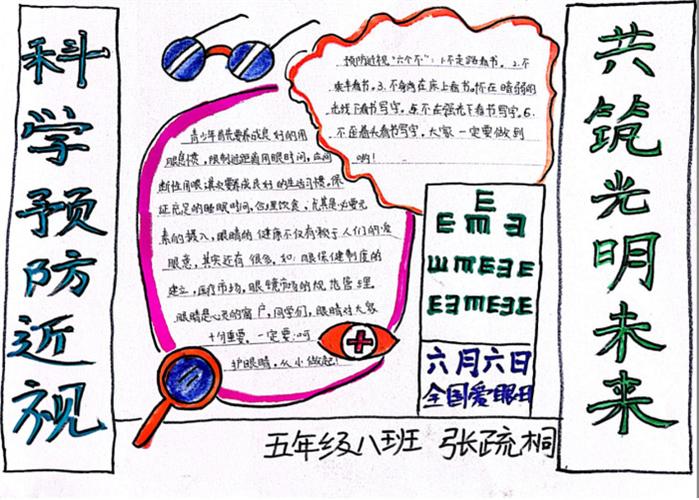 科学预防近视
预防近视“六个不”：1.不走路看书。2.不
乘车看书。3.不躺在床上看书。不在暗弱的
光线下看书写字。5.不在强光下看书写字。6.
不歪着头看书写字，大家一定要做到
哟！
青少年首先要养成良好的用
眼习惯，限制近距离用眼时间，应间
断性用眼 其次要养成良好的生活习惯，保
证充足的睡眠时间，合理饮食，尤其是必要元
素的摄入，眼睛的健康不仅有赖于人们的爱
眼意，其实还有很多，如：眼保健制度的
建立，医疗市场，眼镜市场的规范管理。
眼睛是心灵的窗户，同学们，眼睛对大家
十分重要。一定要
护眼睛，从小做起！
E
E m Ǝ
E m E Ǝ E
E Ǝ m E Ǝ E
六月六日
全国爱眼日
共筑光明未来
五年级八班 张疏桐